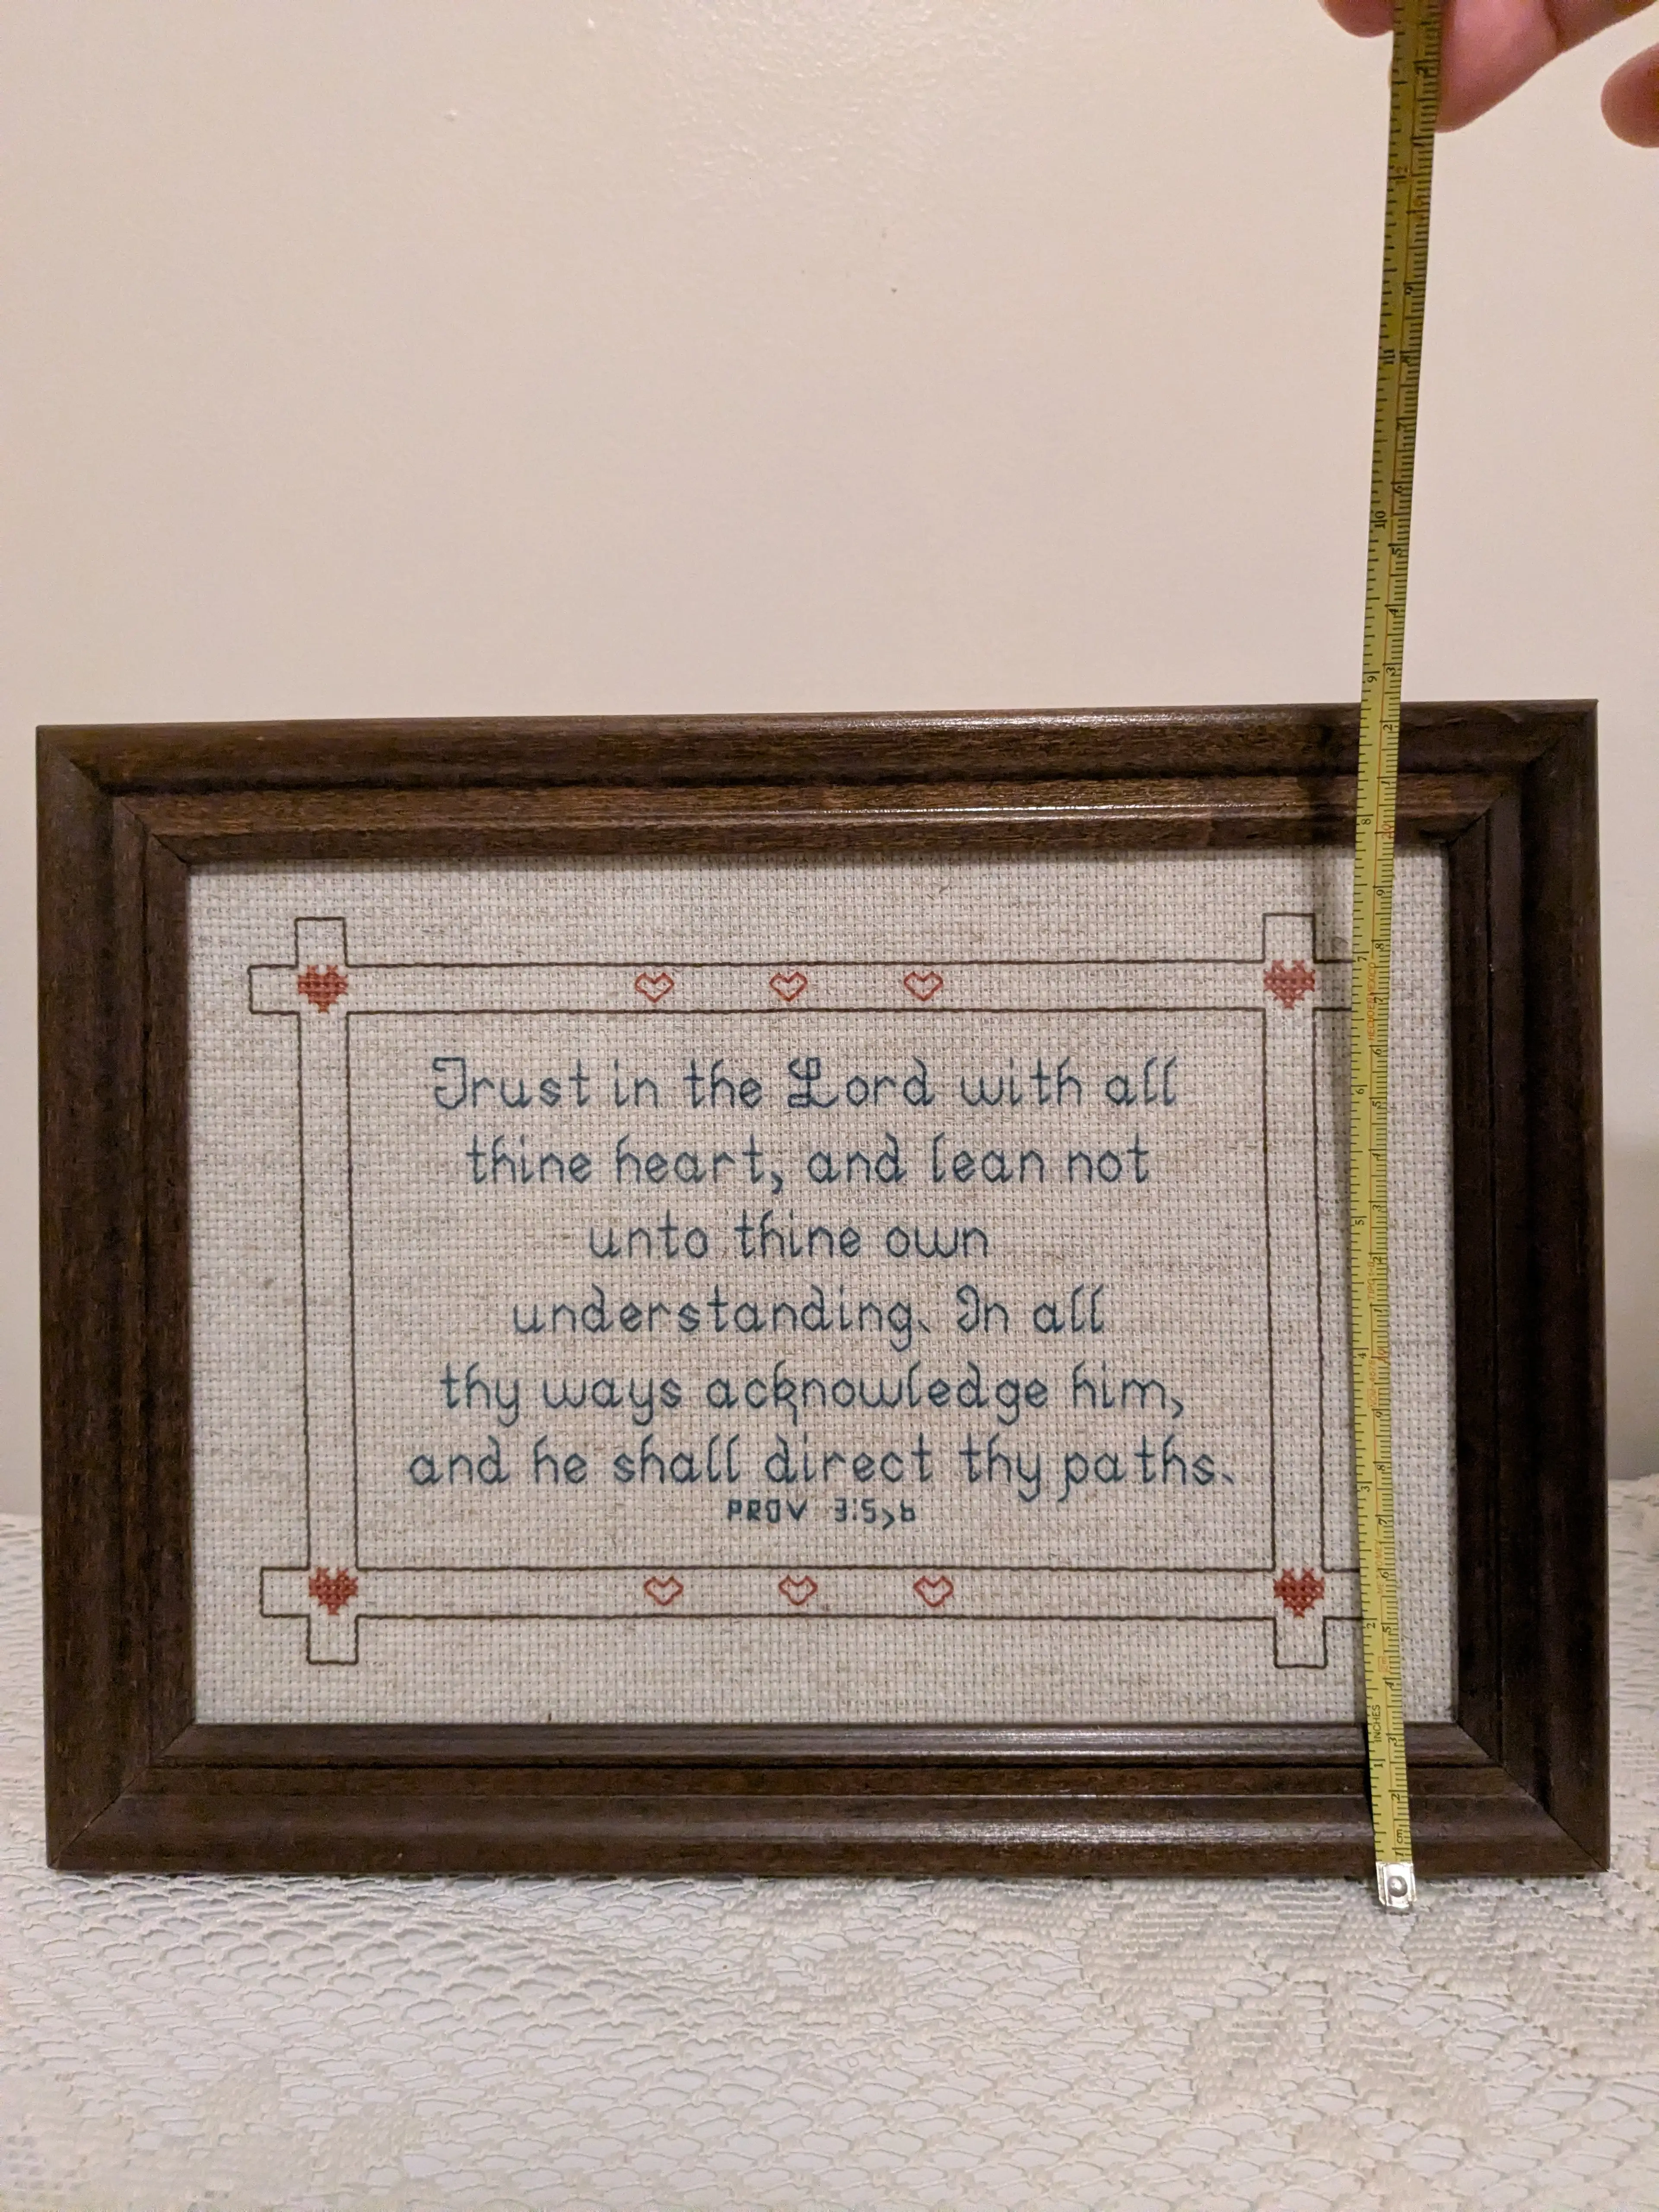 Trust in the Lord with all
thine heart, and lean not
unto thine own
understanding. In all
thy ways acknowledge him,
and he shall direct thy paths.
PROV 3:5,6
10
9
8
7
6
5
4
3
2
INCHES
1
cm